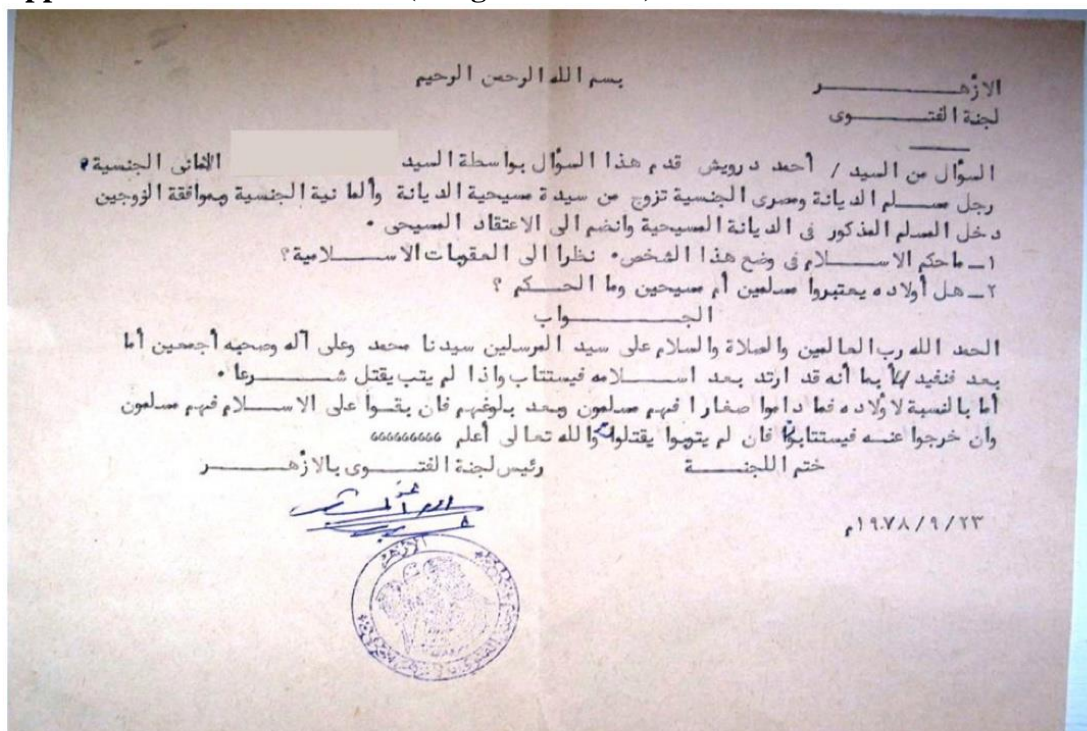 بسم الله الرحمن الرحيم
الأزهـــــر
لجنة الفتـــوى
السؤال من السيد / أحمد درويش قدم هذا السؤال بواسطة السيد الالمانى الجنسية
رجل مســـلم الديانة ومصرى الجنسية تزوج من سيدة مسيحية الديانة وألمانية الجنسية وبموافقة الزوجين
دخل المسلم المذكور فى الديانة المسيحية وانضم الى الاعتقاد المسيحى ٠
١ــ ماحكم الاســـلام فى وضع هذا الشخص٠ نظرا الى العقوبات الاســـلامية؟
٢ــ هل أولاده يعتبروا مسلمين أم مسيحين وما الحـــكم ؟
الجـــــواب
الحمد الله رب العالمين والصلاة والسلام على سيد المرسلين سيدنا محمد وعلى آله وصحبه أجمعين أما
بعد فنفيد بأ بما أنه قد ارتد بعد اســـلامه فيستتاب واذا لم يتب يقتل شـــرعا ٠
أما بالنسبة لاولاده فما داموا صغارا فهم مسلمون وبعد بلوغهم فان بقــوا على الاســـلام فهم مسلمون
وان خرجوا عنــه فيستتابوا فان لم يتوبوا يقتلوا والله تعالى أعلم ٥٥٥٥٥٥٥٥٥
ختم اللجنـــة رئيس لجنة الفتــوى بالازهـــر
٢٣/ ٩/ ١٩٧٨م
الأزهر